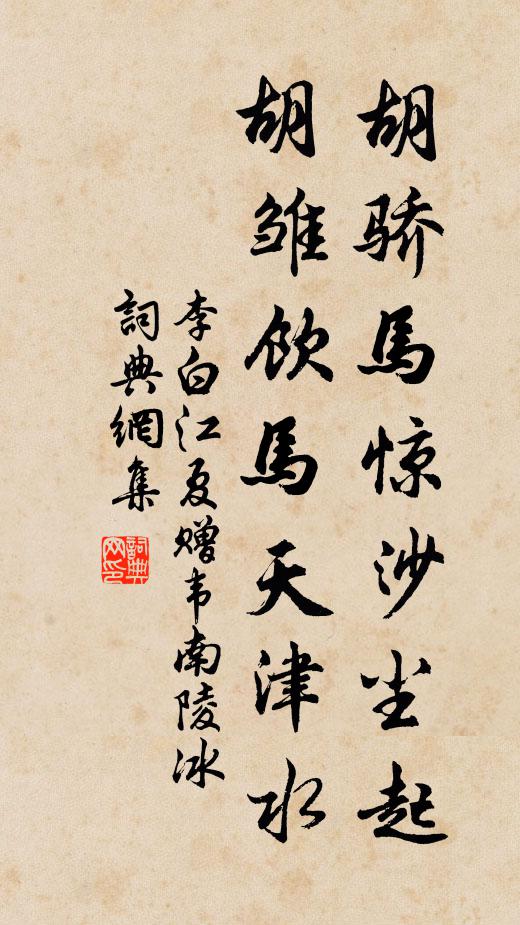 胡骄馬惊沙尘起
胡雏饮馬天津水
李白江夏赠韦南陵冰
詞典網集
詞典
网印